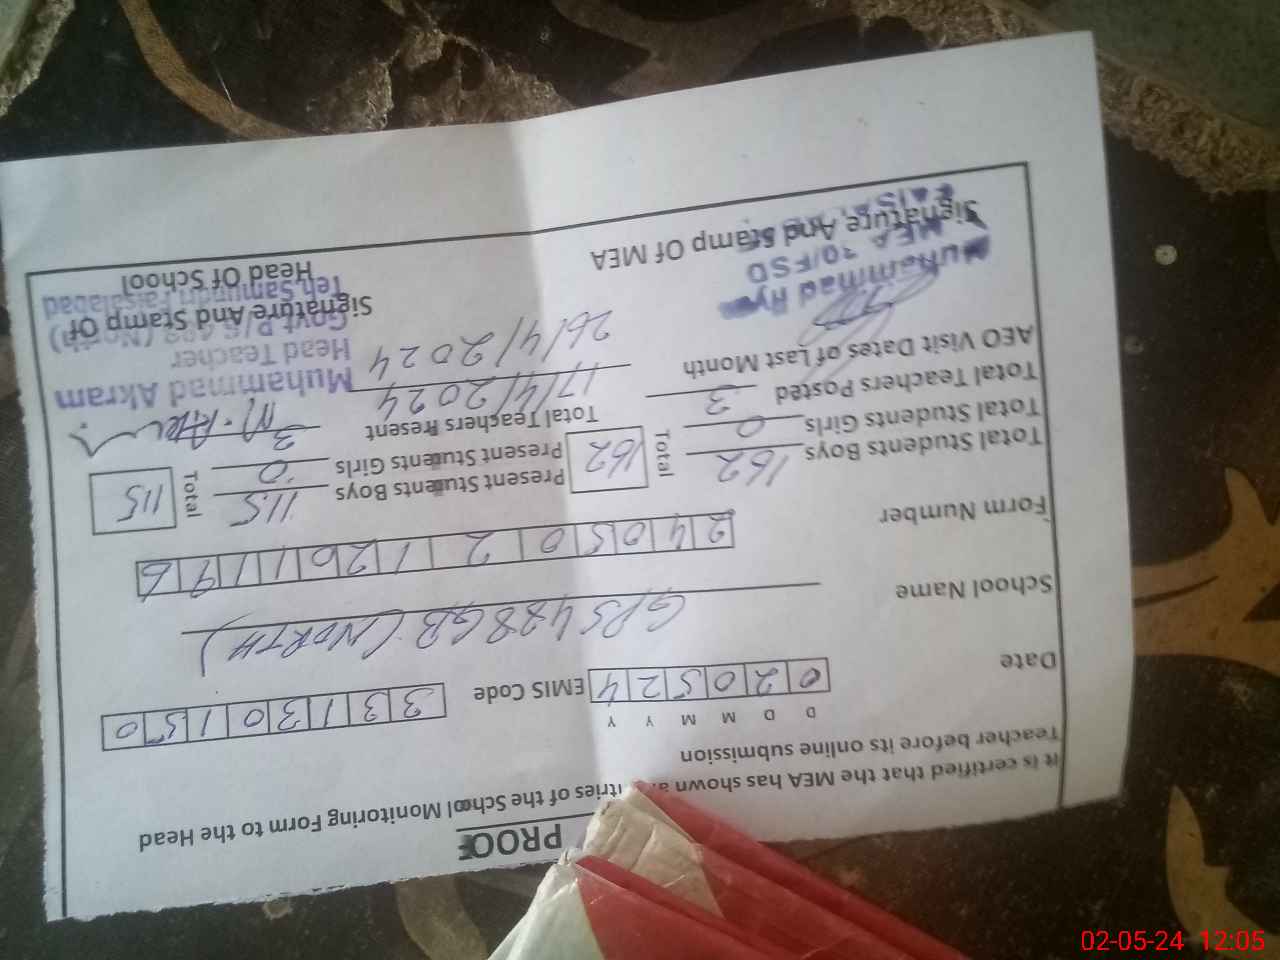 PROOF
It is certified that the MEA has shown all entries of the School Monitoring Form to the Head
Teacher before its online submission
D D M M Y Y
Date 0 2 0 5 2 4 EMIS Code 3 3 1 3 0 1 5 0
School Name GPS 488 GB (NORTH)
Form Number 2 4 0 5 0 2 1 2 6 1 1 1 9 6
Total Students Boys 162 Total 162 Present Students Boys 115 Total 115
Total Students Girls 0 Present Students Girls 0
Total Teachers Posted 3 Total Teachers Present 3
AEO Visit Dates of Last Month 17/4/2024 26/4/2024
Muhammad Akram
Head Teacher
Govt P/S 488 (North)
Teh Samundri Faisalabad
Signature And Stamp Of
Head Of School
Muhammad
MEA 30/FSD
Signature And Stamp Of MEA
02-05-24 12:05